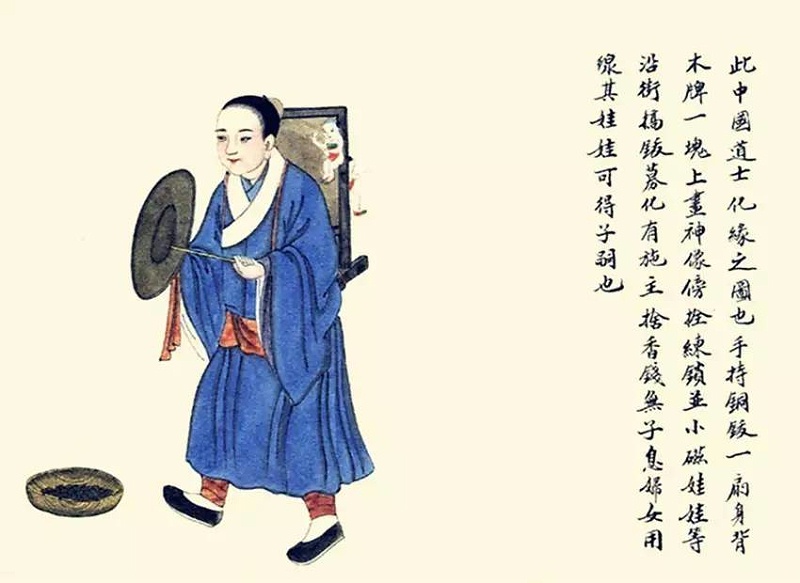 此中國道士化緣之圖也手持銅鈸一扇身背
木牌一塊上畫神像傍拴練鎖並小磁娃娃等
沿街擊鈸募化有施主捨香錢無子息婦女用
線其娃娃可得子嗣也